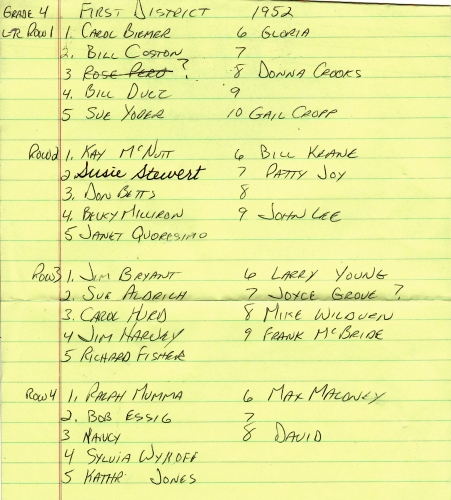 GRADE 4 FIRST DISTRICT 1952
LTR ROW 1 1. CAROL BIEMER 6 GLORIA
2. BILL COSTON 7
3 ROSE PERO ? 8 DONNA CROOKS
4. BILL DUEZ 9
5 SUE YODER 10 GAIL CROPP
ROW 2 1. KAY MCNUTT 6 BILL KEANE
2 Susie Stewert 7 PATTY JOY
3. DON BETTS 8
4. BECKY MILLIRON 9 JOHN LEE
5 JANET QUORESIMO
ROW 3 1. JIM BRYANT 6 LARRY YOUNG
2. SUE ALDRICH 7 JOYCE GROVE ?
3. CAROL HURD 8 MIKE
4 JIM HARVEY 9 FRANK MCBRIDE
5 RICHARD FISHER
ROW 4 1. RALPH MUMMA 6 MAX MALONEY
2. BOB ESSIG 7
3 NANCY 8 DAVID
4 SYLVIA WYKOFF
5 KATHR JONES